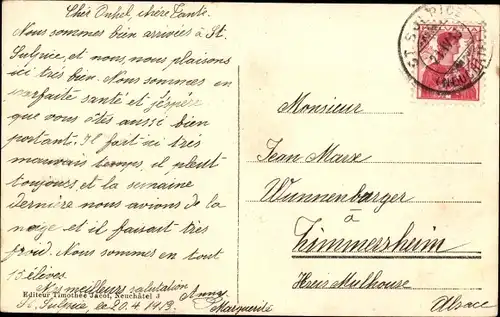 Chér Onkel, chère Tante.
Nous sommes bien arrivées à St.
Sulpice et nous, nous plaisons
ici très bien. Nous sommes en
parfaite santé et j'éspère
que vous êtes aussi bien
portant. Il fait ici très
mauvais temps, il pleut
toujours, et la semaine
dernière nous avions de la
neige et il faisait très
froid. Nous sommes en tout
15 élèves.
Nos meilleurs salutation
Anny
Marguerite
Editeur Timothée Jacot, Neuchâtel J
St. Sulpice, le 20.4.1913.
ST. SULPICE
Monsieur
Jean-Marx
Wunnenburger
à
Zimmersheim
Kreis Mulhouse
Alsace